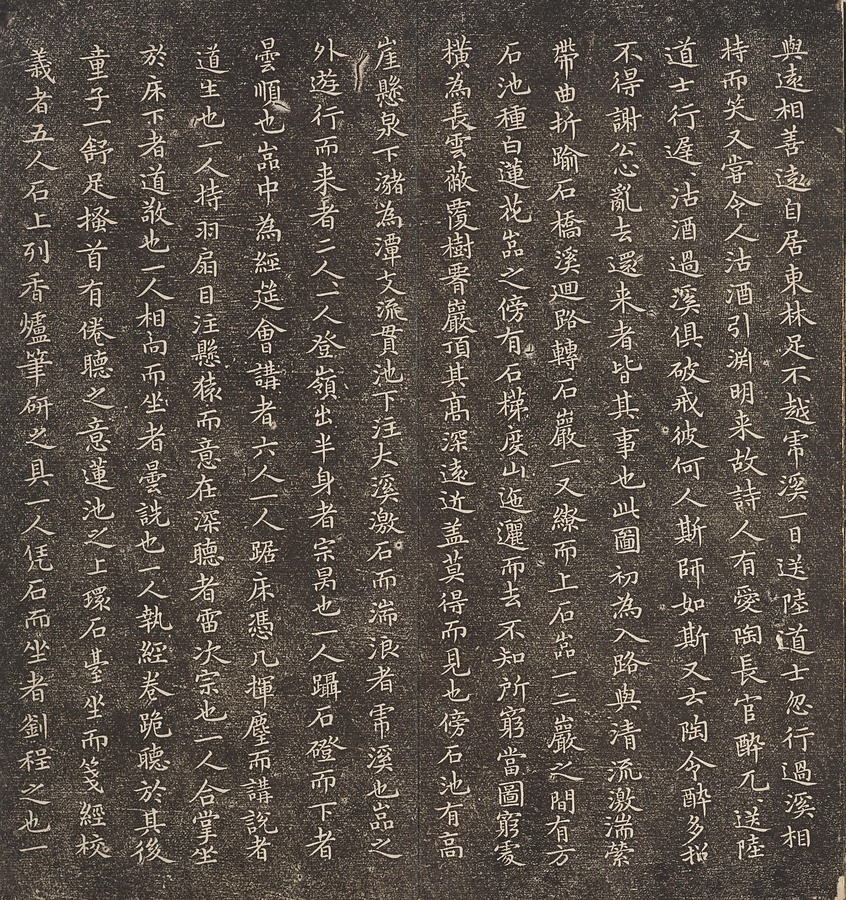 與遠相善遠自居東林足不越虎溪一日送陸道士忽行過溪相
持而笑又嘗令人沽酒引淵明来故詩人有愛陶長官醉兀〻送陸
道士行遲〻沽酒過溪俱破戒彼何人斯師如斯又云陶令醉多招
不得謝公心亂去還来者皆其事也此圖初為入路與清流激湍縈
帶曲折踰石橋溪迴路轉石巖一又繚而上石嵓一二巖之間有方
石池種白蓮花嵓之傍有石梯度山迤邐而去不知所窮當圖窮處
橫為長雲蔽覆樹杪巖頂其髙深遠近盖莫得而見也傍石池有高
崖懸泉下瀦為潭支派貫池下注大溪激石而湍浪者虎溪也嵓之
外遊行而来者二人一人登嶺出半身者宗昺也一人躡石磴而下者
曇順也嵓中為經筵會講者六人一人踞床憑几揮麈而講說者
道生也一人持羽扇目注懸猿而意在深聽者雷次宗也一人合掌坐
於床下者道敬也一人相向而坐者曇詵也一人執經卷跪聽於其後
童子一舒足搔首有倦聽之意蓮池之上環石臺坐而箋經校
義者五人石上列香爐筆研之具一人凭石而坐者劉程之也一